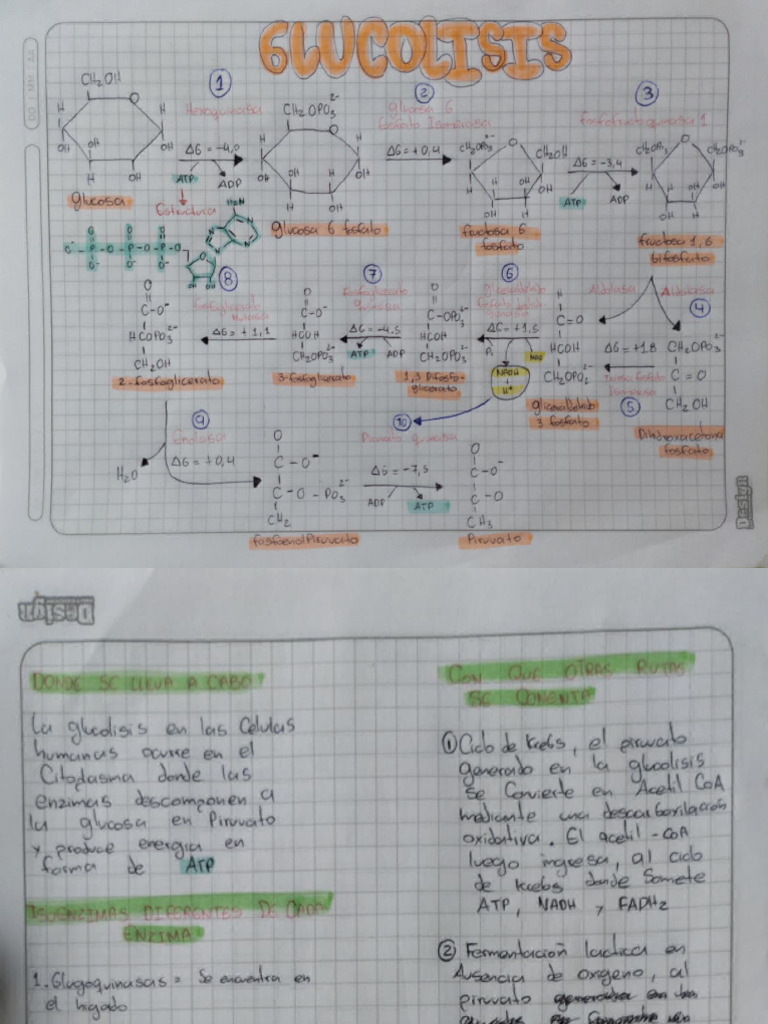 GLUCOLISIS
DD MM AA
1
2
3
CH₂OH
O
H
OH
Hexoquinasa
ΔG = -4,0
ATP
ADP
Estructura
glucosa
CH₂OPO₃²⁻
glucosa 6 fosfato
glucosa 6
fosfato Isomerasa
ΔG = +0,4
CH₂OH
fructosa 6
fosfato
Fosfofructoquinasa 1
ΔG = -3,4
ATP
ADP
fructosa 1,6
bifosfato
NH₂
O⁻ - P - O - P - O - P - O
8
7
6
4
Aldolasa
Aldolasa
2-fosfoglicerato
ΔG = +1,1
3-fosfoglicerato
ΔG = -4,5
ATP
ADP
1,3 Difosfo-
glicerato
ΔG = +1,5
Pi
NAD
NADH
H⁺
gliceraldehido
3 fosfato
ΔG = +1.8
Isomerasa
5
CH₂OPO₃²⁻
C = O
CH₂OH
Dihidroxacetona
fosfato
9
Enolasa
ΔG = +0,4
H₂O
O
C - O⁻
C - O - PO₃²⁻
CH₂
fosfoenolPiruvato
10
Piruvato quinasa
ΔG = -7,5
ADP
ATP
O
C - O⁻
C - O
CH₃
Piruvato
Design
Design
DONDE SE LLEVA A CABO?
La glucolisis en las Celulas
humanas ocurre en el
Citoplasma donde las
enzimas descomponen a
la glucosa en Piruvato
y produce energia en
forma de ATP
ISOENZIMAS DIFERENTES DE CADA
ENZIMA
1. Glugoquinasas = Se encuentra en
el higado
CON QUE OTRAS RUTAS
SE CONENTA
① Ciclo de Krebs, el piruvato
generado en la glucolisis
se Convierte en Acetil CoA
mediante una descarboxilación
oxidativa. El acetil-CoA
luego ingresa, al ciclo
de krebs donde Somete
ATP, NADH y FADH₂
② Fermentación lactica en
Ausencia de oxigeno, al
piruvato